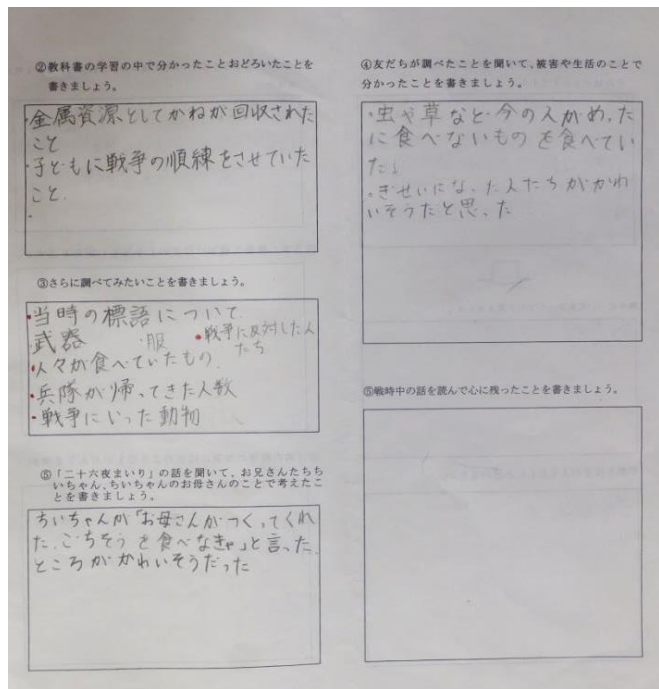 ②教科書の学習の中で分かったことおどろいたことを
書きましょう。
・金属資源としてかねが回収された
こと
・子どもに戦争の順練をさせていた
こと.
・
③さらに調べてみたいことを書きましょう。
・当時の標語について
・武器 ・服 ・戦争に反対した人
たち
・人々が食べていたもの
・兵隊が帰ってきた人数
・戦争にいった動物
⑤「二十六夜まいり」の話を聞いて、お兄さんたちち
いちゃん、ちいちゃんのお母さんのことで考えたこ
とを書きましょう。
ちいちゃんが「お母さんがつくってくれ
た.ごちそうを食べなきゃ」と言った.
ところがかわいそうだった
④友だちが調べたことを聞いて、被害や生活のことで
分かったことを書きましょう。
・虫や草など今の人がめった
に食べないものを食べてい
た。
・ぎせいになった人たちがかわ
いそうだと思った
⑤戦時中の話を読んで心に残ったことを書きましょう。